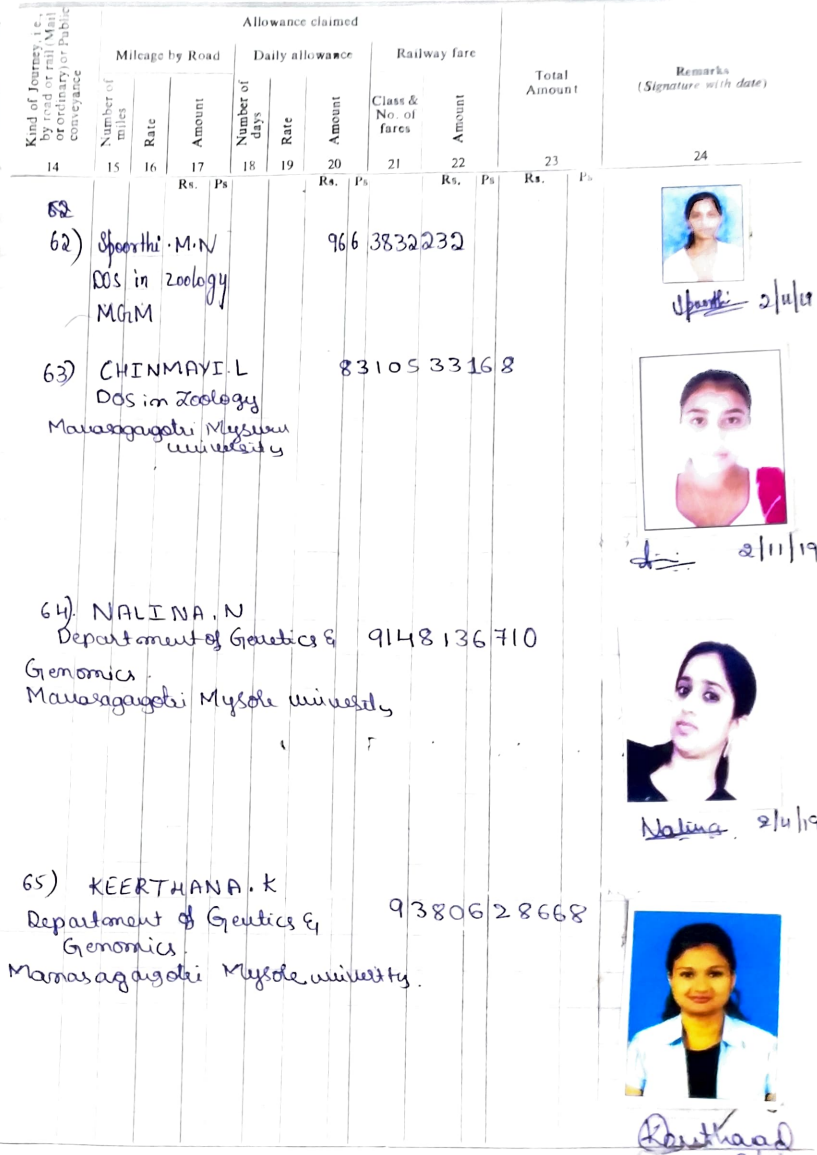 Allowance claimed
Kind of Journey, i.e., by road or rail (Mail or ordinary) or Public conveyance
Mileage by Road
Daily allowance
Railway fare
Total Amount
Remarks
(Signature with date)
Number of miles
Rate
Amount
Number of days
Rate
Amount
Class & No. of fares
Amount
14 15 16 17 18 19 20 21 22 23 24
Rs. Ps Rs. Ps Rs. Ps Rs. Ps
62
62) Spoorthi.M.N 9663832232
DOS in zoology
MGM
Spoorthi 2/11/19
63) CHINMAYI.L 8310533168
DOS in Zoology
Manasagagotri Mysuru
university
2/11/19
64). NALINA.N
Department of Genetics & 9148136710
Genomics.
Manasagaigotri Mysole university
Nalina 2/11/19
65) KEERTHANA.K
Department of Gentics & 9380628668
Genomics.
Manasagaigotri Mysole univeritty.